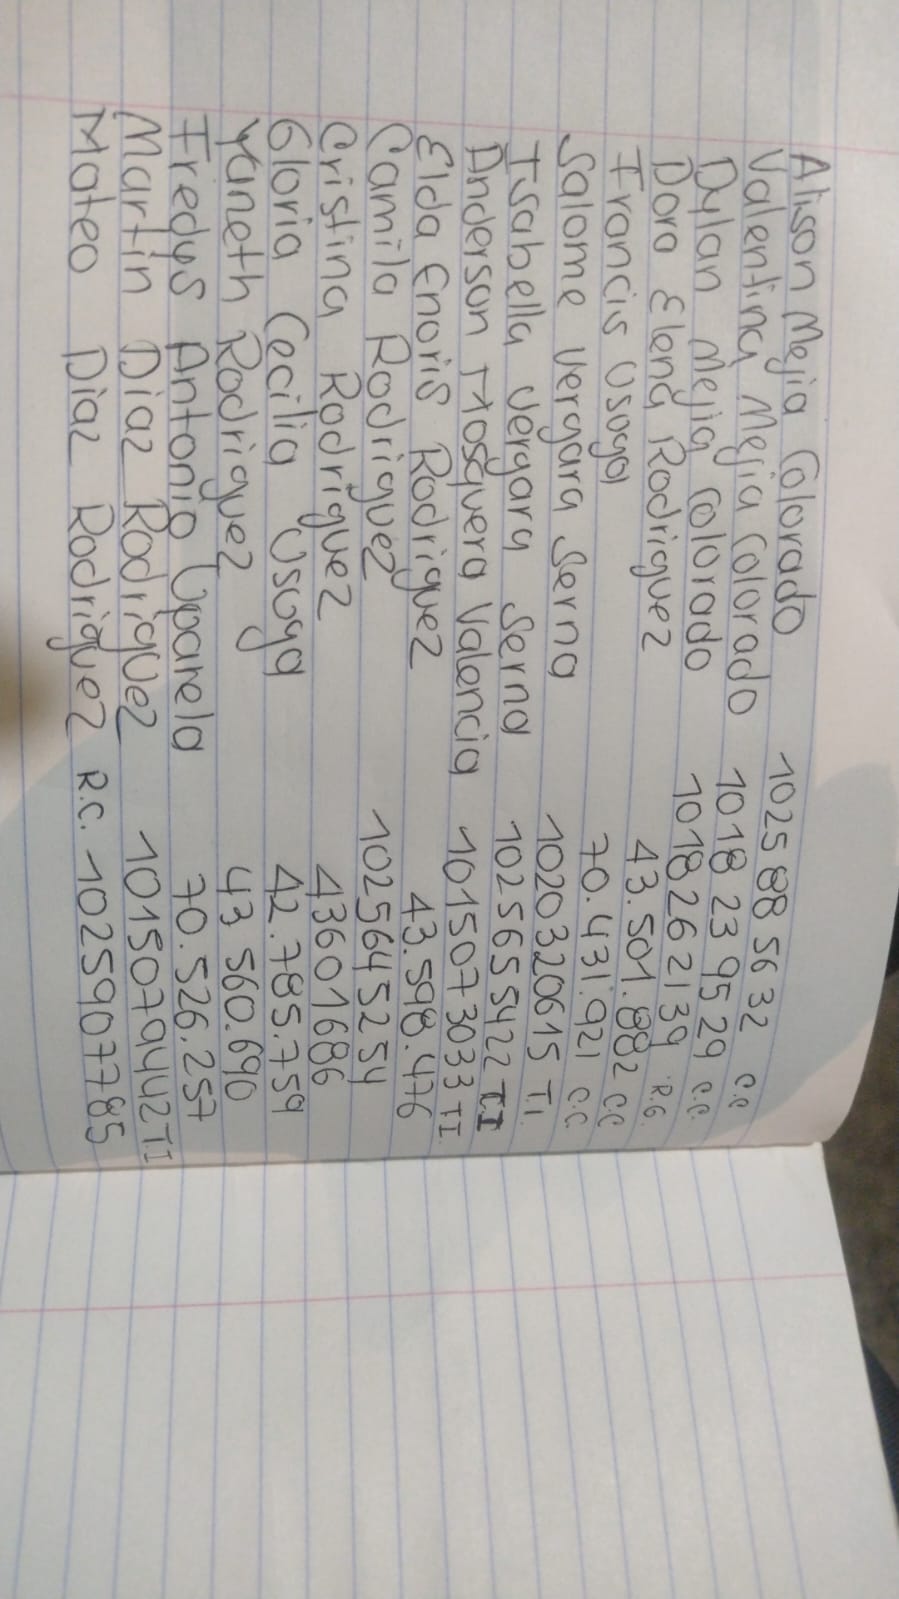 Alison Mejia Colorado 1025 88 56 32 c.c
Valentina Mejia Colorado 1018 23 95 29 c.c.
Dylan Mejia Colorado 1018262139 R.C.
Dora Elena Rodriguez 43.501.882 c.c
Francis Usoga 70.431.921 c.c.
Salome Vergara Serna 1020320615 T.I.
Isabella Vergara Serna 1025655422 T.I
Anderson Mosquera Valencia 1015073033 T.I.
Elda Enoris Rodriguez 43.598.476
Camila Rodriguez 1025645254
Cristina Rodriguez 43601686
Gloria Cecilia Usuga 42.785.759
Yaneth Rodriguez 43 560.690
Fredys Antonio Uparela 70.526.257
Martin Diaz Rodriguez 1015079442 T.I
Mateo Diaz Rodriguez R.C. 1025907785